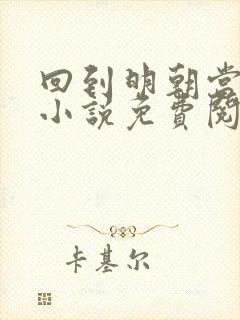 回到明朝当
小说免費閱
卡基尔